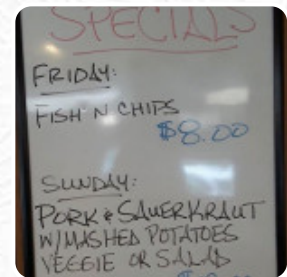 SPECIALS
FRIDAY:
FISH N CHIPS
$8.00
SUNDAY:
PORK & SAUERKRAUT
W/MASHED POTATOES
VEGGIE OR SALAD